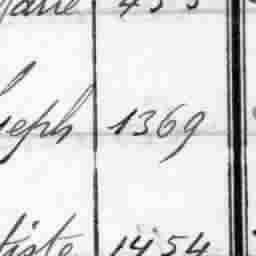 Marie 433
seph 1369
tiste 1454